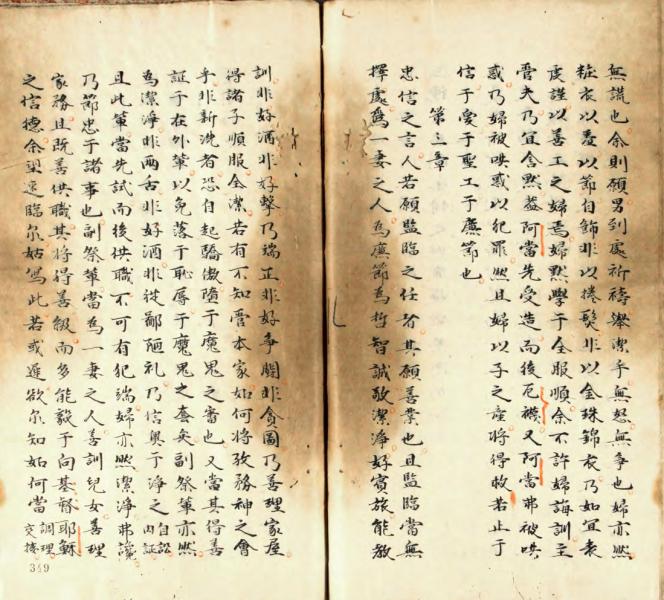 無謊也余則願男到處祈禱舉潔手無怒無爭也婦亦然
粧衣以羞以節自飾非以捲髮非以金珠錦衣乃如宜表
虔謹以善工之婦焉婦默學于全服順余不許婦誨訓主
管夫乃宜含默葢阿當先受造而後厄襪又阿當弗被哄
惑乃婦被哄惑以犯罪然且婦以子之產將得救若止于
信于愛于聖工于廉節也
第三章
忠信之言人若願監臨之任者其願善業也且監臨當無
擇處爲一妻之人為廉節為哲智誠敬潔淨好賓旅能教
訓非好酒非好擊乃端正非好爭鬭非貪圖乃善理家屋
得諸子順服全潔若有不知管本家如何將攷務神之會
乎非新洗者恐自起驕傲墮于魔鬼之審也又當其得善
証于在外輩以免落于恥辱于魔鬼之套矣副祭輩亦然
為潔淨非兩舌非好酒非從鄙陋礼乃信奧于淨之自訟內証
且此輩當先試而後供職不可有犯端婦亦然潔淨弗讒
乃節忠于諸事也副祭輩當為一妻之人善訓兒女善理
家務且既善供職其將得善級而多能毅于向基督耶穌
之信德余望速臨尔姑寫此若或遲欲尔知如何當調理交接
349